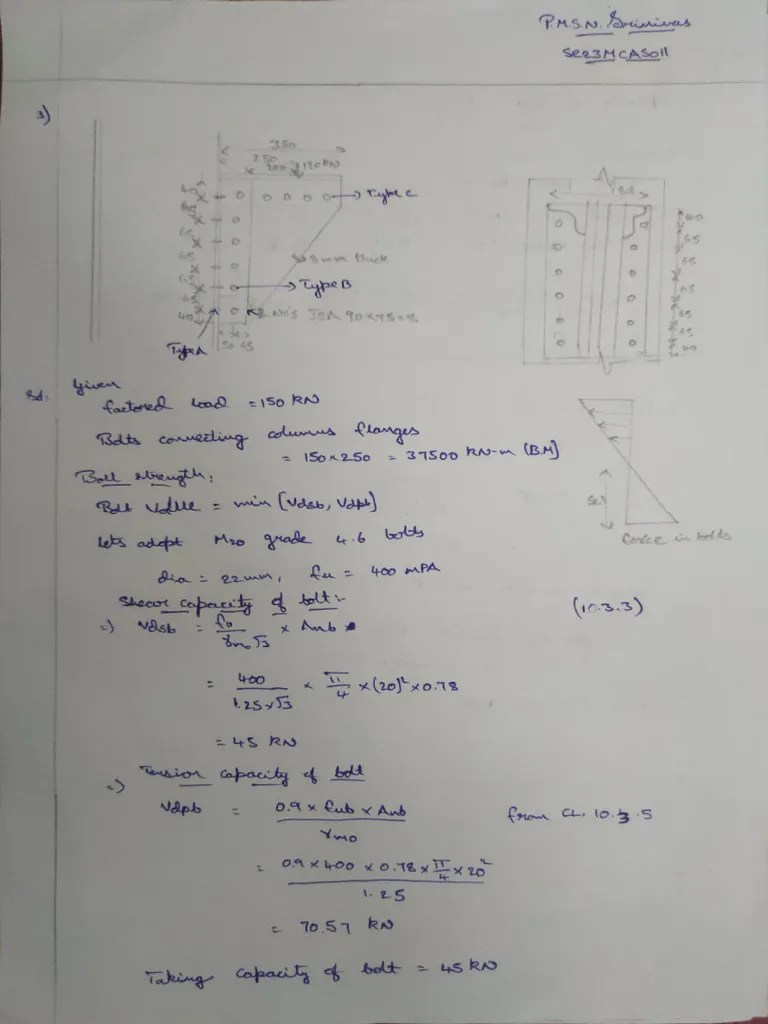 P.M.S.N. Srinivas
SE23MCAS011
3)
350
250
200 120 KN
Type C
8mm thick
Type B
2 No's ISA 90 x 75 x 8
Type A
50 45
40
65
65
65
65
65
40
Sol. Given
factored load = 150 KN
Bolts connecting columns flanges
= 150 x 250 = 37500 KN-m (B.M]
force in bolts
Bolt strength:
Bolt Value = min [Vdsb, Vdpb]
lets adopt M20 grade 4.6 bolts
dia = 22mm, fu = 400 MPA
Shear capacity of bolt:-
(10.3.3)
=) Vdsb = fb / γmo√3 x Anb
= 400 / 1.25 x √3 x π/4 x (20)² x 0.78
= 45 KN
=) Tension capacity of bolt
Vdpb = 0.9 x fub x Anb / γmo from CL. 10.3.5
= 0.9 x 400 x 0.78 x π/4 x 20² / 1.25
= 70.57 KN
Taking capacity of bolt = 45 KN